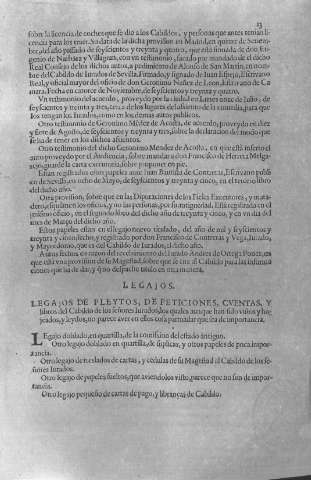 13
sobre la licencia de coches que se dio a los Cabildos, y personas que antes tenian li-
cencia para los traer. Su data de la dicha provision en Madrid, en quinze de Setiem-
bre, del año passado de seyscientos y treynta y quatro, que està firmada de don Eu-
genio de Narbaez y Villagran, con vn testimonio, sacado por mandado de el dicho
Real Consejo de los dichos autos, a pedimiento de Alonso de San Martin, en nom-
bre del Cabildo de Iurados de Sevilla. Firmado, y signado de Iuan Espejo, Escrivano
Real, y oficial mayor del oficio de don Geronimo Nuñez de Leon, Escrivano de Ca
mara. Fecha en catorze de Noviembre, de seyscientos y treynta y quatro.
Vn testimonio del acuerdo, proveydo por la ciudad en Lunes onze de Iulio, de
seyscientos y treynta y tres, cerca de los lugares del assiento de la comedia, para que
los tengan los Iurados, como en los demas autos publicos.
Otro testimonio de Geronimo Mendez de Acosta, de acuerdo, proveydo en diez
y siete de Agosto, de seyscientos y treynta y tres, sobre la declaracion del modo que
se ha de tener en los dichos assientos.
Otro testimonio del dicho Geronimo Mendez de Acosta, en que està inserto el
auto proveydo por el Audiencia, sobre mandar a don Francisco de Herrera Melga-
rejo, guarde la carta executoria, sobre proponer en pie.
Estan registrados estos papeles ante Iuan Bautista de Contreras, Escrivano publi-
co de Sevilla, en ocho de Mayo, de seyscientos y treynta y cinco, en el tercero libro
del dicho año.
Otra provision, sobre que en las Diputaciones de los Fieles Executores, y mata-
dero, assistan los oficios, y no las personas, por su antiguedad. Està registrada en el
mismo oficio, en el segundo libro del dicho año de treynta y cinco, y en vn dia del
mes de Março del dicho año.
Estos papeles estan en el legajo nuevo titulado, del año de mil y seyscientos y
treynta y cinco, fecho, y registrado por don Francisco de Contreras y Vega, Iurado,
y Mayordomo, que es del Cabildo de Iurados, el dicho año.
Autos fechos, en razon del recebimiento del jurado Andres de Ortega Ponce, en
que està vna provision de su Magestad, sobre que se cite al Cabildo para las informa
ciones que se ha dar, y no despache titulo en otra manera.
LEGAJOS.
LEGAJOS DE PLEYTOS, DE PETICIONES, CVENTAS, Y
libros del Cabildo de los señores Iurados, los quales aunque han sido vistos y ho-
jeados, y leydos, no parece aver en ellos cosa particular que sea de importancia.
Legajo doblado, en quartilla, de la comission del estado antiguo.
Otro legajo doblado en quartilla, de suplicar, y otros papeles de poca impor-
tancia.
Otro legajo de traslados de cartas, y cedulas de su Magestad al Cabildo de los se-
ñores Iurados.
Otro legajo de papeles sueltos, que aviendolos visto, parece que no son de impor-
tancia.
Otro legajo pequeño de cartas de pago, y libranças de Cabildo.